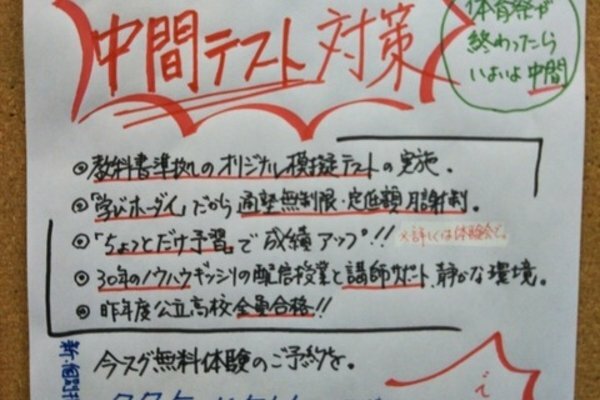 中間テスト対策
体育祭が
終わったら
いよいよ中間
◎教科書準拠しのオリジナル模擬テストの実施。
◎「学びホーダイ」だから通塾無制限・定低額月謝制。
◎「ちょっとだけ予習」で成績アップ!! ※詳しくは体験会で。
◎30年のノウハウギッシリの配信授業と講師サポート、静かな環境。
◎昨年度公立高校全員合格!!
今スグ無料体験のご予約を。
新・個別